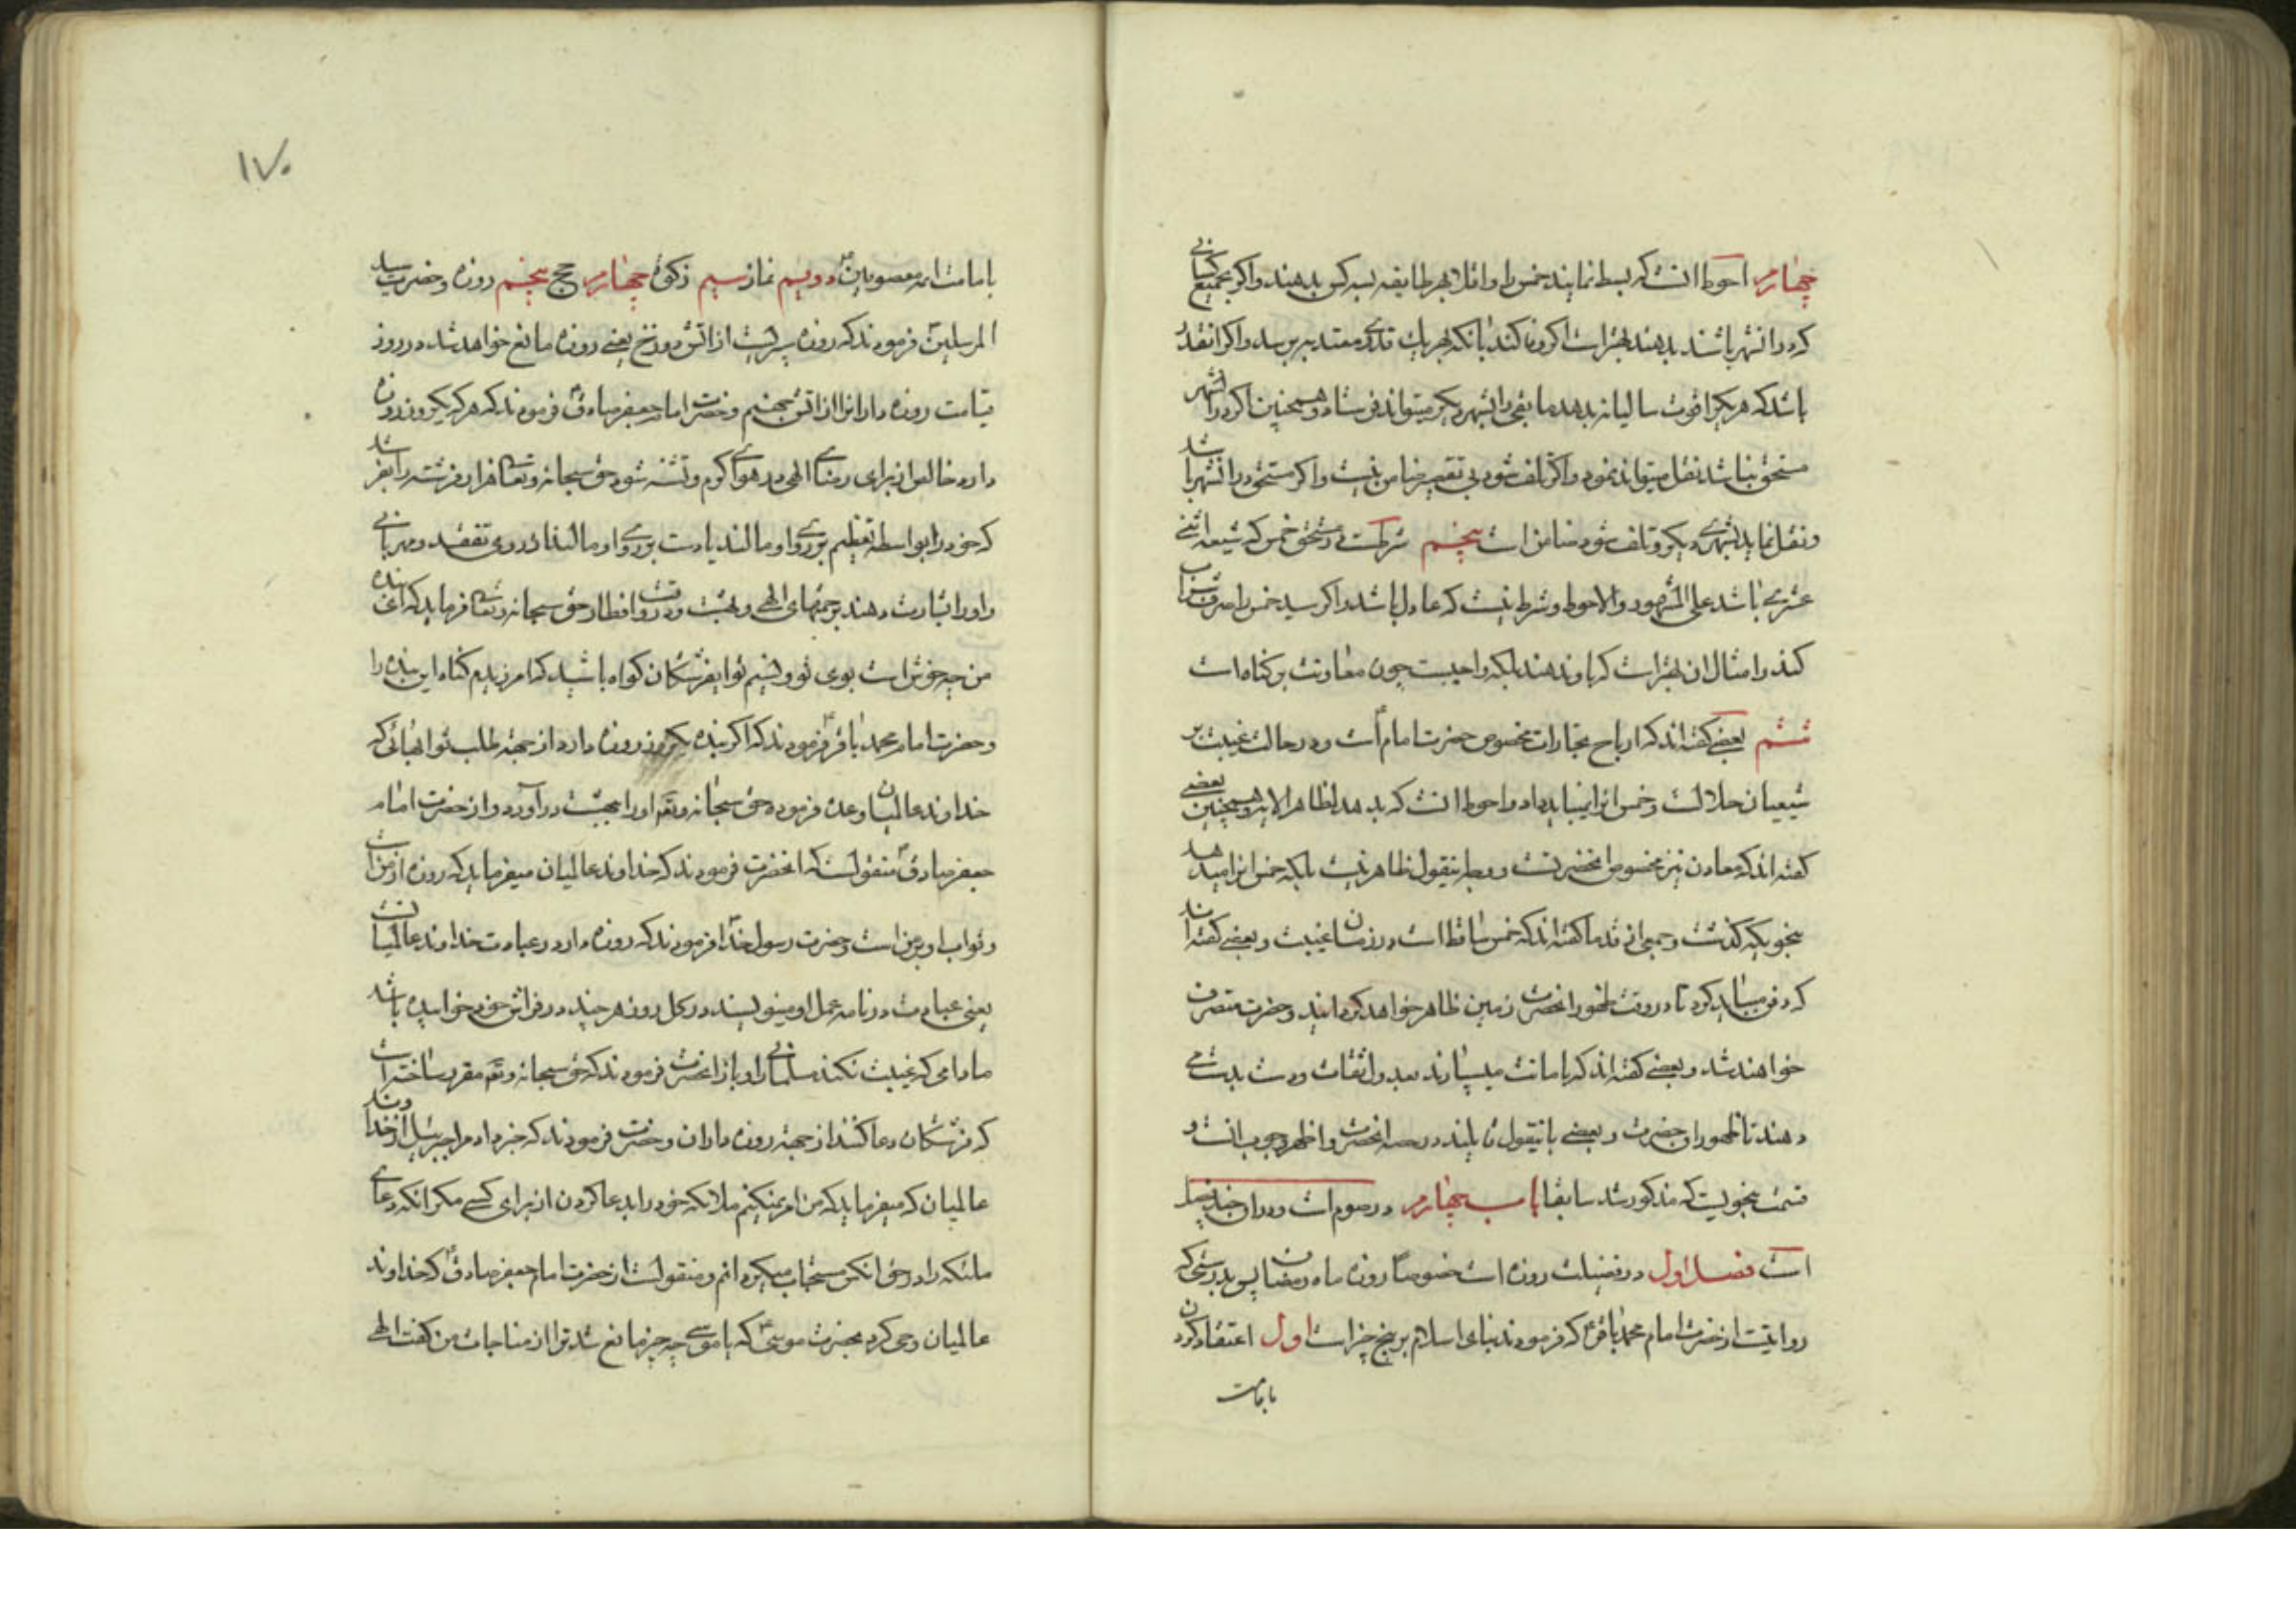 چهارم احوط انست که بسط نمایند خمس را و اقلا بهر طایفه بسه کس بدهند و اگر بجمیع کسانی
که در انشهر باشند بدهند بهتر است اگر وفا کند بانکه بهر یک قدری معتد به برسد و اگر انقدر
باشد که هر یکرا قوت سالیانه بدهد مابقی را بشهر دیگر میتواند فرستاد و همچنین اگر در انشهر
مستحق نباشد نقل میتواند نمود و اگر تلف شود بی تقصیر ضامن نیست و اگر مستحق در انشهر باشد
و نقل نماید بشهری دیگر و تلف شود ضامن است پنجم شرطست در مستحق خمس که شیعه اثنی
عشری باشد علی المشهور و الاحوط و شرط نیست که عادل باشد و اگر سید خمس را صرف شراب
کند و امثال ان بهتر است که باو ندهند بلکه واجبست چون معاونت بر گناه است
ششم بعضی گفته اند که ارباح تجارات مخصوص حضرت امام است و در حالت غیبت بر
شیعیان حلالست و خمس انرا نمیباید داد و احوط انست که بدهد لظاهر الایه و همچنین بعضی
گفته اند که معادن نیز مخصوص انحضرتست و وجه اینقول ظاهر نیست بلکه خمس انرا میدهد
بنحویکه گذشت و جمعی از قدما گفته اند که خمس ساقط است در زمان غیبت و بعضی گفته اند
که دفن میباید کرد تا در وقت ظهور انحضرت زمین ظاهر خواهد گردانید و حضرت متصرف
خواهند شد و بعضی گفته اند که بامانت میسپارند بعدول ثقات و دست بدست می
دهند تا ظهور ان حضرت و بعضی باینقول قایلند در حصه انحضرت و اظهر وجوب انست و
قسمت بنحویست که مذکور شد سابقا باب چهارم در صوم است و در ان چند فصل
است فصل اول در فضیلت روزه است خصوصا روزه ماه رمضان پس بدرستی که
روایتست از حضرت امام محمد باقر ع که فرمودند بنای اسلام بر پنج چیز است اول اعتقاد کردن
بامامت
۱۷۰
بامامت ائمه معصومین ع دویم نماز سیم زکوة چهارم حج پنجم روزه و حضرت سید
المرسلین ص فرمودند که روزه سپریست از اتش دوزخ یعنی روزه مانع خواهد شد در روز
قیامت روزه داران را از اتش جهنم و حضرت امام جعفر صادق ع فرمودند که هر که یکروز روزه
دارد خالص از برای رضای الهی در هوای گرم و تشنه شود حق سبحانه و تعالی هزار فرشته را بفرستد
که خود را بواسطه تعظیم بر روی او مالند یا دست بر روی او مالند از روی تفقد و مهربانی
و او را بشارت دهند برحمتهای الهی و بهشت و در وقت افطار حق سبحانه و تعالی فرماید که ای بنده
من چه خوش است بوی تو و نسیم تو ای فرشتکان گواه باشید که امرزیدم گناه این بنده را
و حضرت امام محمد باقر ع فرمودند که اگر بنده یکروز روزه دارد از جهته طلب ثوابهائی که
خداوند عالمیان وعده فرموده حق سبحانه و تعالی او را ببهشت در آورد و از حضرت امام
جعفر صادق ع منقولست که انحضرت فرمودند که خداوند عالمیان میفرماید که روزه از من است
و ثواب او بر من است و حضرت رسول خدا ص فرمودند که روزه دار در عبادت خداوند عالمیانست
یعنی عبادت در نامه عمل او مینویسند در کل روز هر چند در فراش خود خوابیده باشد
مادامی که غیبت نکند مسلمانی را و باز انحضرت فرمودند که حق سبحانه و تعالی مقرر ساخته است
که فرشتکان دعا کنند از جهته روزه داران و حضرت فرمودند که خبر داد مرا جبرئیل از خداوند
عالمیان که میفرماید که من امر نمیکنم ملائکه خود را بدعا کردن از برای کسی مکر انکه دعای
ملئکه را در حق انکس مستجاب میگردانم و منقولست از حضرت امام جعفر صادق ع که خداوند
عالمیان وحی کرد بحضرت موسی ع که یا موسی چه چیز مانع شد ترا از مناجات من گفت الهی